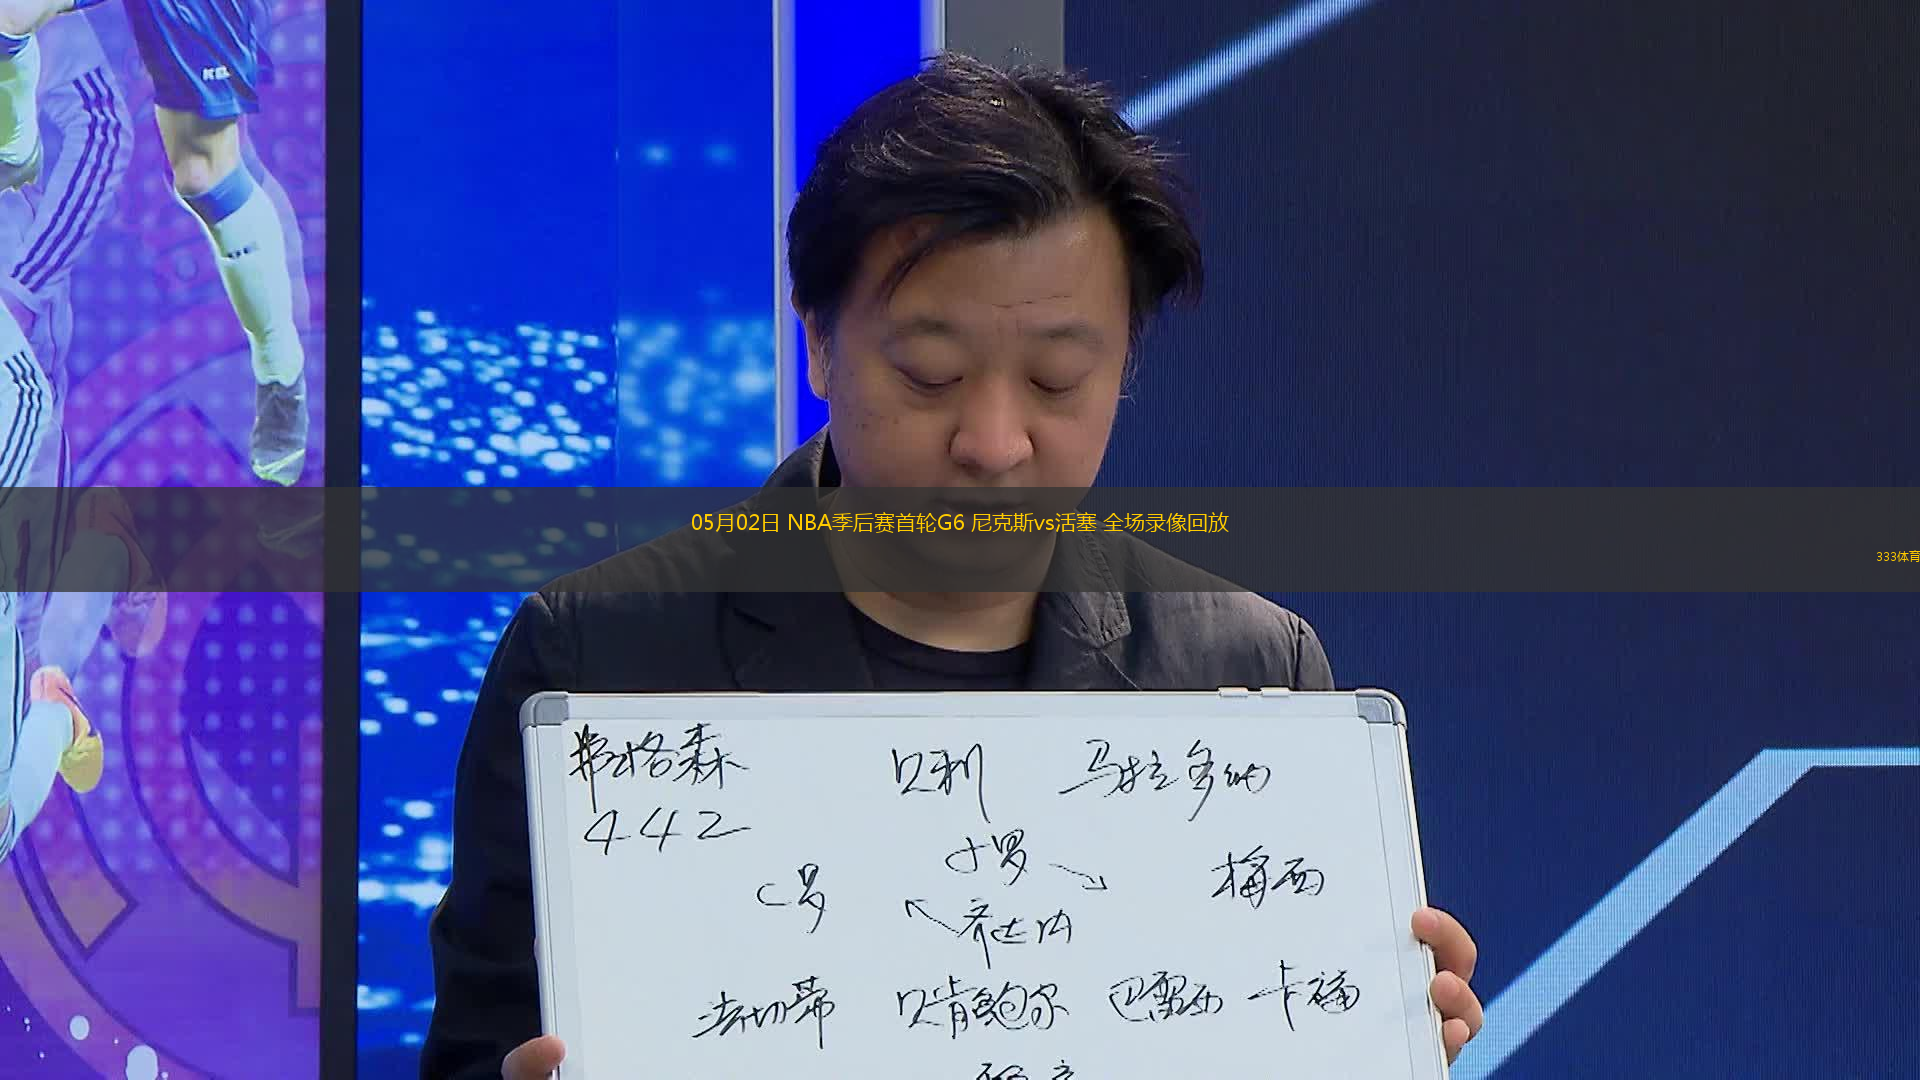 05月02日 NBA季后赛首轮G6 尼克斯vs活塞 全场录像回放
333体育
弗格森 贝利 马拉多纳
442
小罗
C罗 梅西
齐达内
法切蒂 贝肯鲍尔 巴雷西 卡福